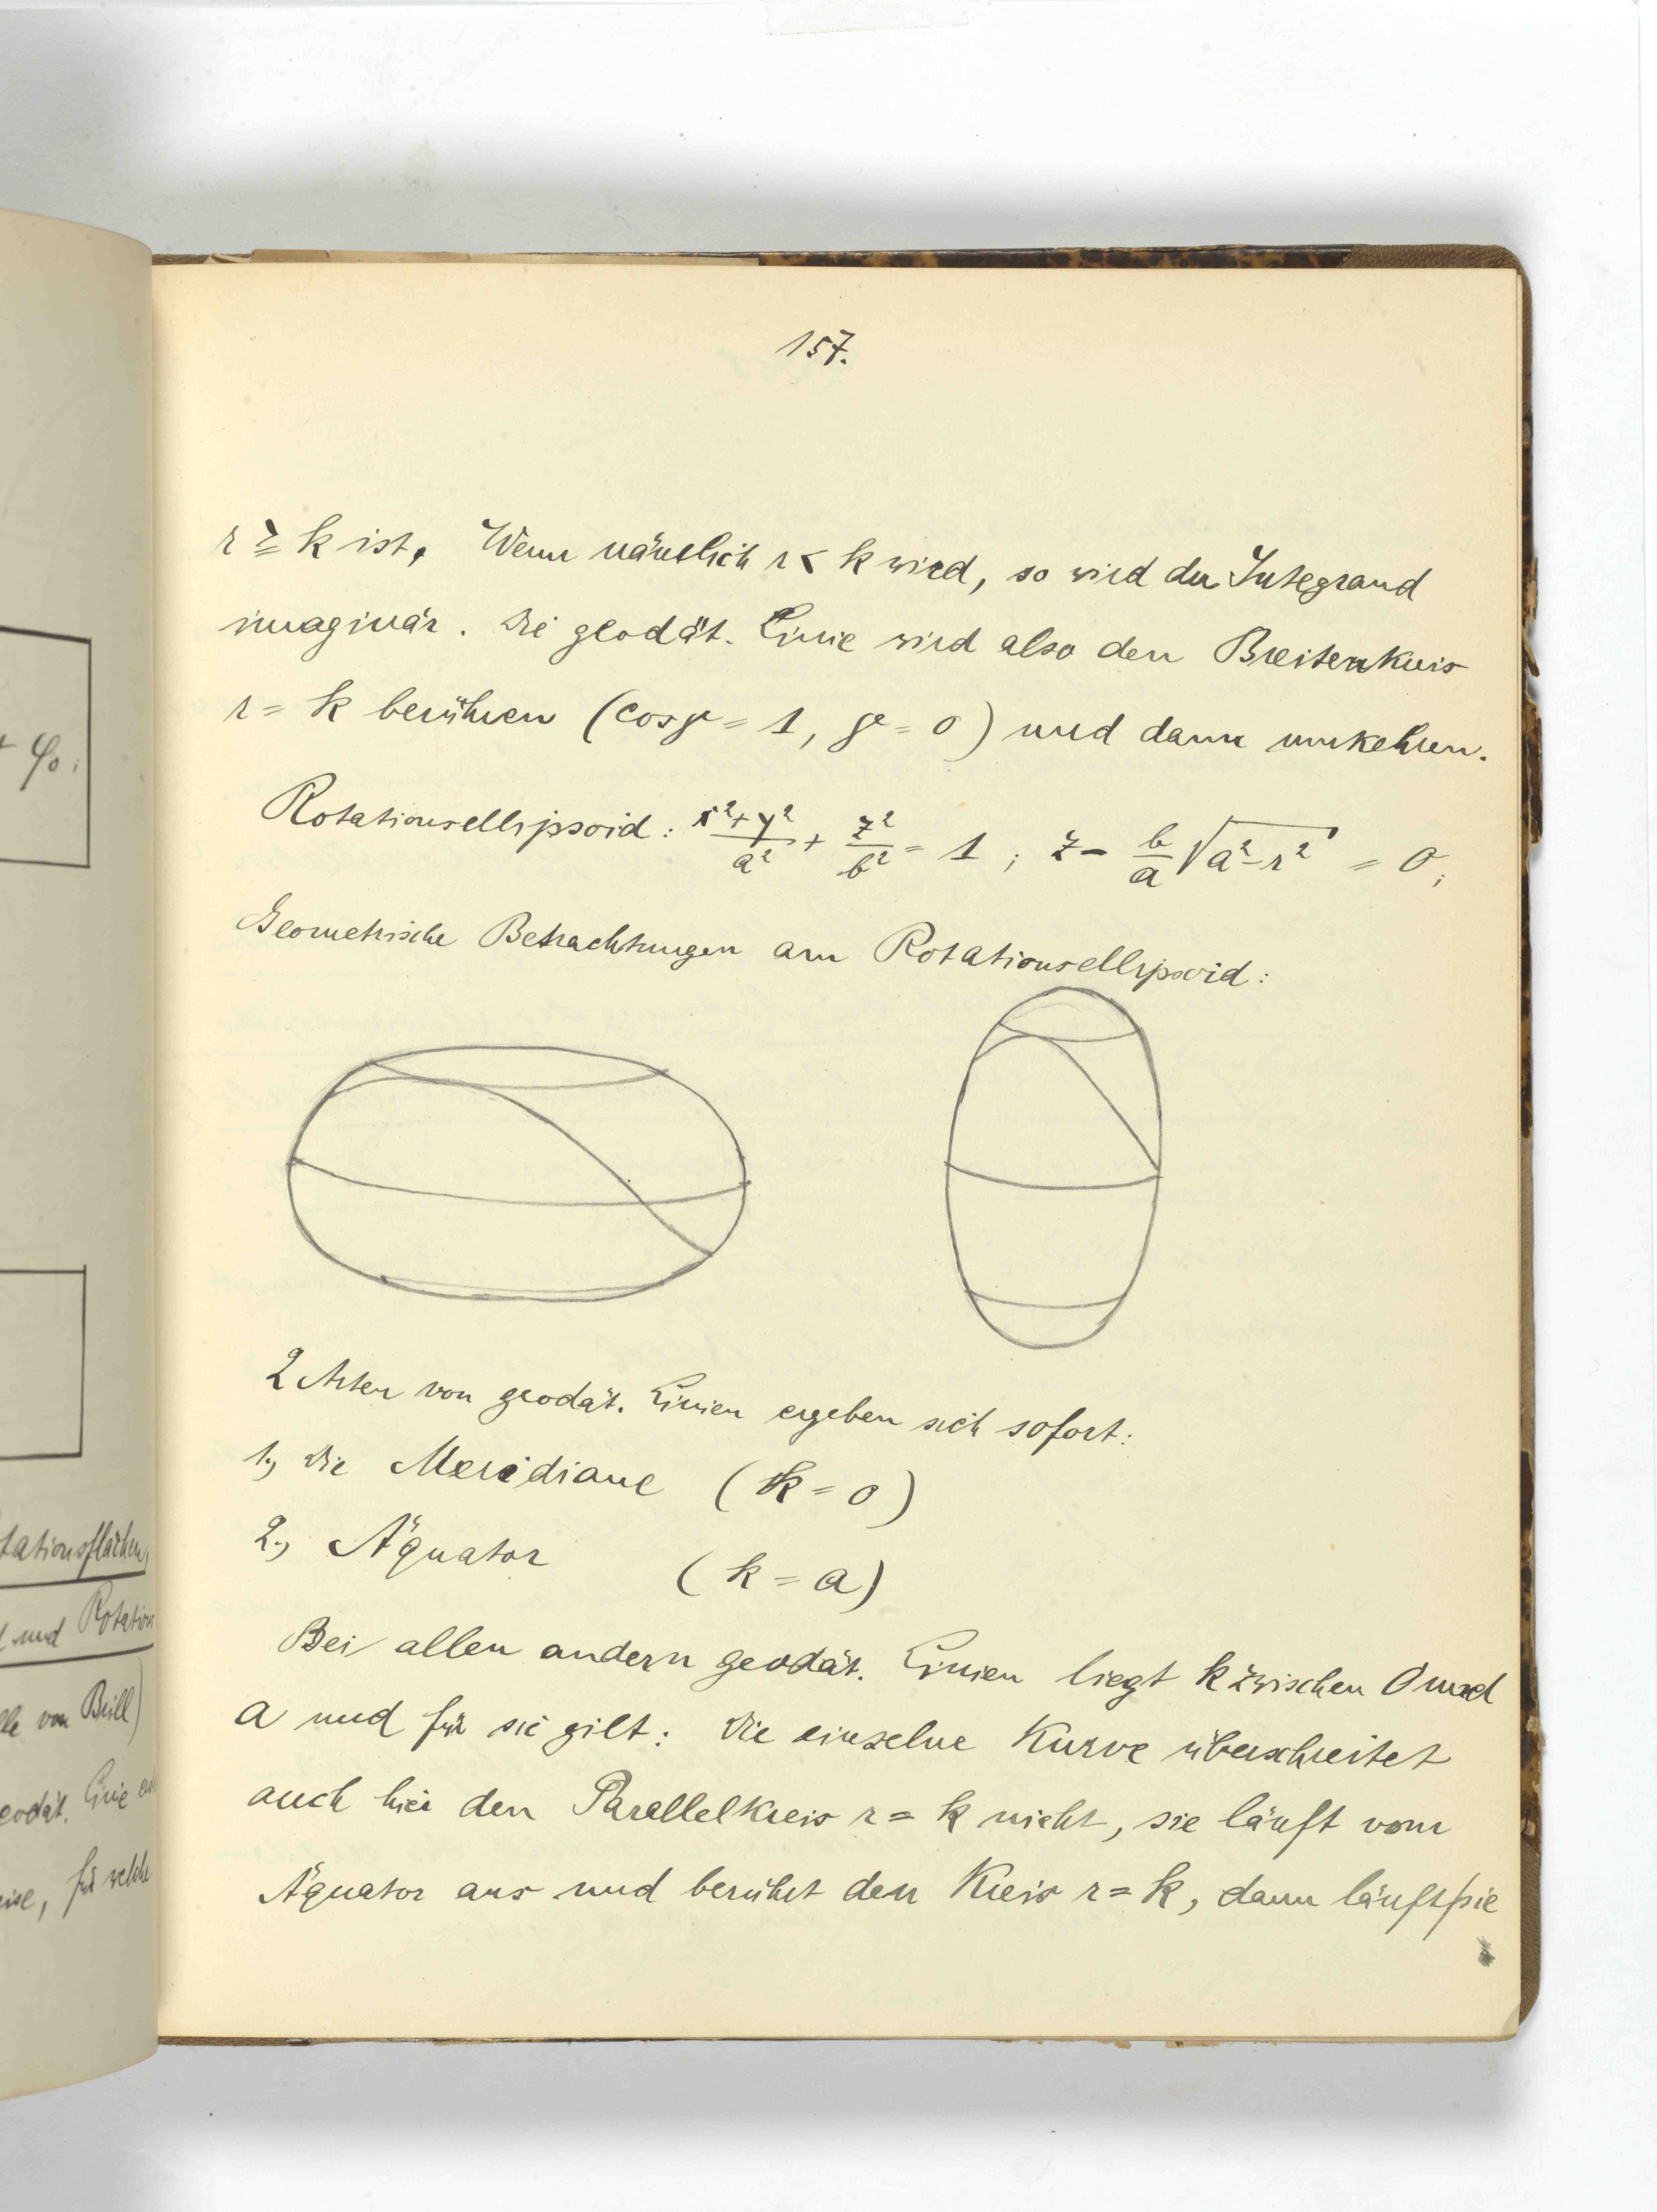 157.
r ≧ k ist. Wenn nämlich r < k wird, so wird der Integrand
imaginär. Die geodät. Linie wird also den Breitenkreis
r = k berühren (cos μ = 1, μ = 0) und dann umkehren.
Rotationsellipsoid: (x²+y²)/a² + z²/b² = 1 ; z - b/a √(a²-r²) = 0;
Geometrische Betrachtungen am Rotationsellipsoid:
2 Arten von geodät. Linien ergeben sich sofort:
1., Die Meridiane (k = 0)
2., Äquator (k = a)
Bei allen andern geodät. Linien liegt k zwischen 0 und
a und für sie gilt: Die einzelne Kurve überschreitet
auch hier den Parallelkreis r = k nicht, sie läuft vom
Äquator aus und berührt den Kreis r = k, dann läuft sie
+ φ₀;
tationsflächen,
und Rotation
von Brill)
eodät. Linie
für welche